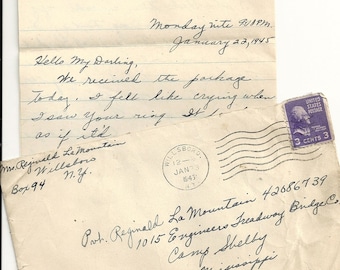 Monday nite 9:10 P.M.
January 22, 1945
Hello My Darling,
We received the package
today. I felt like crying when
I saw your ring It
as if it'd
Mr. Reginald La Mountain
Willsboro
Box 94 N.Y.
WILLSBORO,
JAN 23
N.Y.
UNITED STATES POSTAGE
3 CENTS 3
Pvt. Reginald La Mountain 42086739
1015 Engineers Treadway Bridge Co.
Camp Shelby
Mississippi